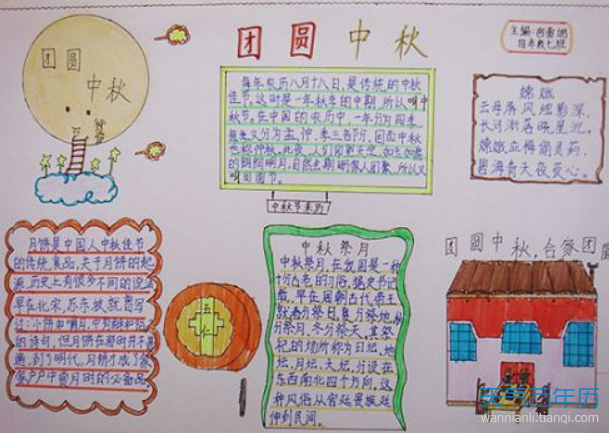 团圆中秋
主编:
四年级七班
团圆
中秋
每年农历八月十八日,是传统的中秋
佳节。这时是一年秋季的中期,所以叫中
秋节。在中国的农历中,一年分为四季,
每季又分为孟、仲、季三各部分,因而中秋
也称仲秋。此夜,人们仰望天空,如玉如盘
的朗朗明月,自然会期盼家人团聚,所以又
叫团圆节。
中秋节来历
嫦娥
云母屏风烛影深,
长河渐落晓星沉。
嫦娥应悔偷灵药,
碧海青天夜夜心。
月饼是中国人中秋佳节
的传统食品,关于月饼的起
源,历史上有很多不同的说法
早在北宋,苏东坡就曾写
过:小饼如嚼月,中
的诗句,但月饼在那时并不普
遍,到了明代,月饼才成了家
家户户中赏月时的必备品
中秋祭月
中秋祭月,在我国是一种
十分古老的习俗。据史书记
载,早在周朝古代帝王
就春分祭日,夏分祭地,秋
分祭月,冬分祭天,其祭
祀的场所称为日坛、地
坛、月坛、天坛,分设在
东西南北四个方向,这
种风俗从宫廷贵族延
伸到民间。
团圆中秋,合家团圆
天气万年历
wannianli.tianqi.com